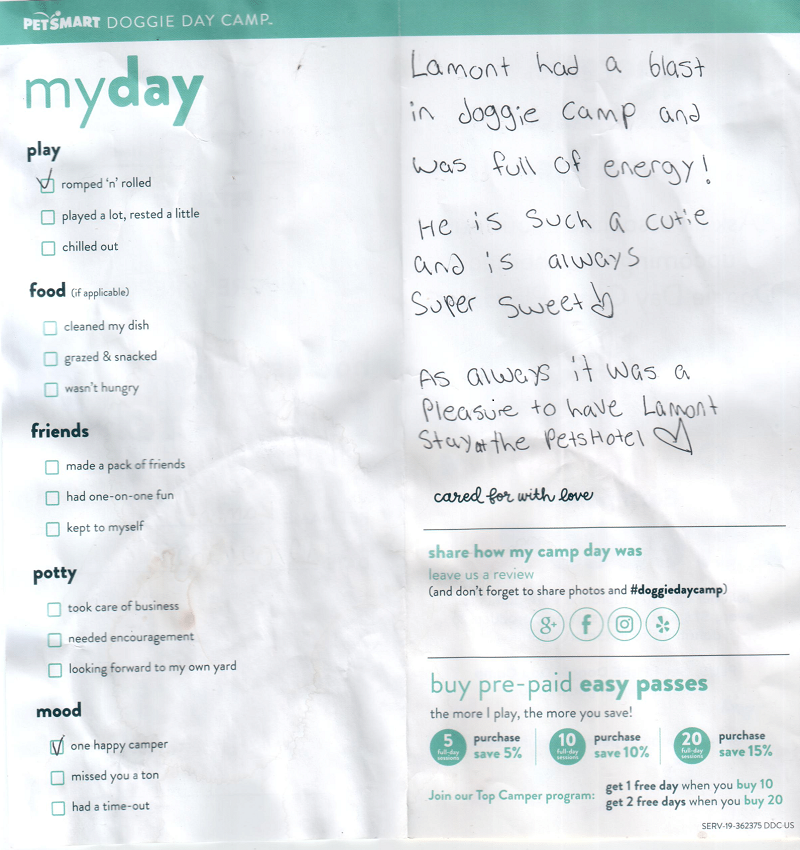 PETSMART DOGGIE DAY CAMP™
myday
play
romped 'n' rolled
played a lot, rested a little
chilled out
food (if applicable)
cleaned my dish
grazed & snacked
wasn't hungry
friends
made a pack of friends
had one-on-one fun
kept to myself
potty
took care of business
needed encouragement
looking forward to my own yard
mood
one happy camper
missed you a ton
had a time-out
Lamont had a blast
in doggie camp and
was full of energy!
He is such a cutie
and is always
Super Sweet
As always it was a
Pleasure to have Lamont
Stay at the PetsHotel
cared for with love
share how my camp day was
leave us a review
(and don't forget to share photos and #doggiedaycamp)
g+ f
buy pre-paid easy passes
the more I play, the more you save!
5 full-day sessions purchase save 5%
10 full-day sessions purchase save 10%
20 full-day sessions purchase save 15%
Join our Top Camper program: get 1 free day when you buy 10
get 2 free days when you buy 20
SERV-19-362375 DDC US